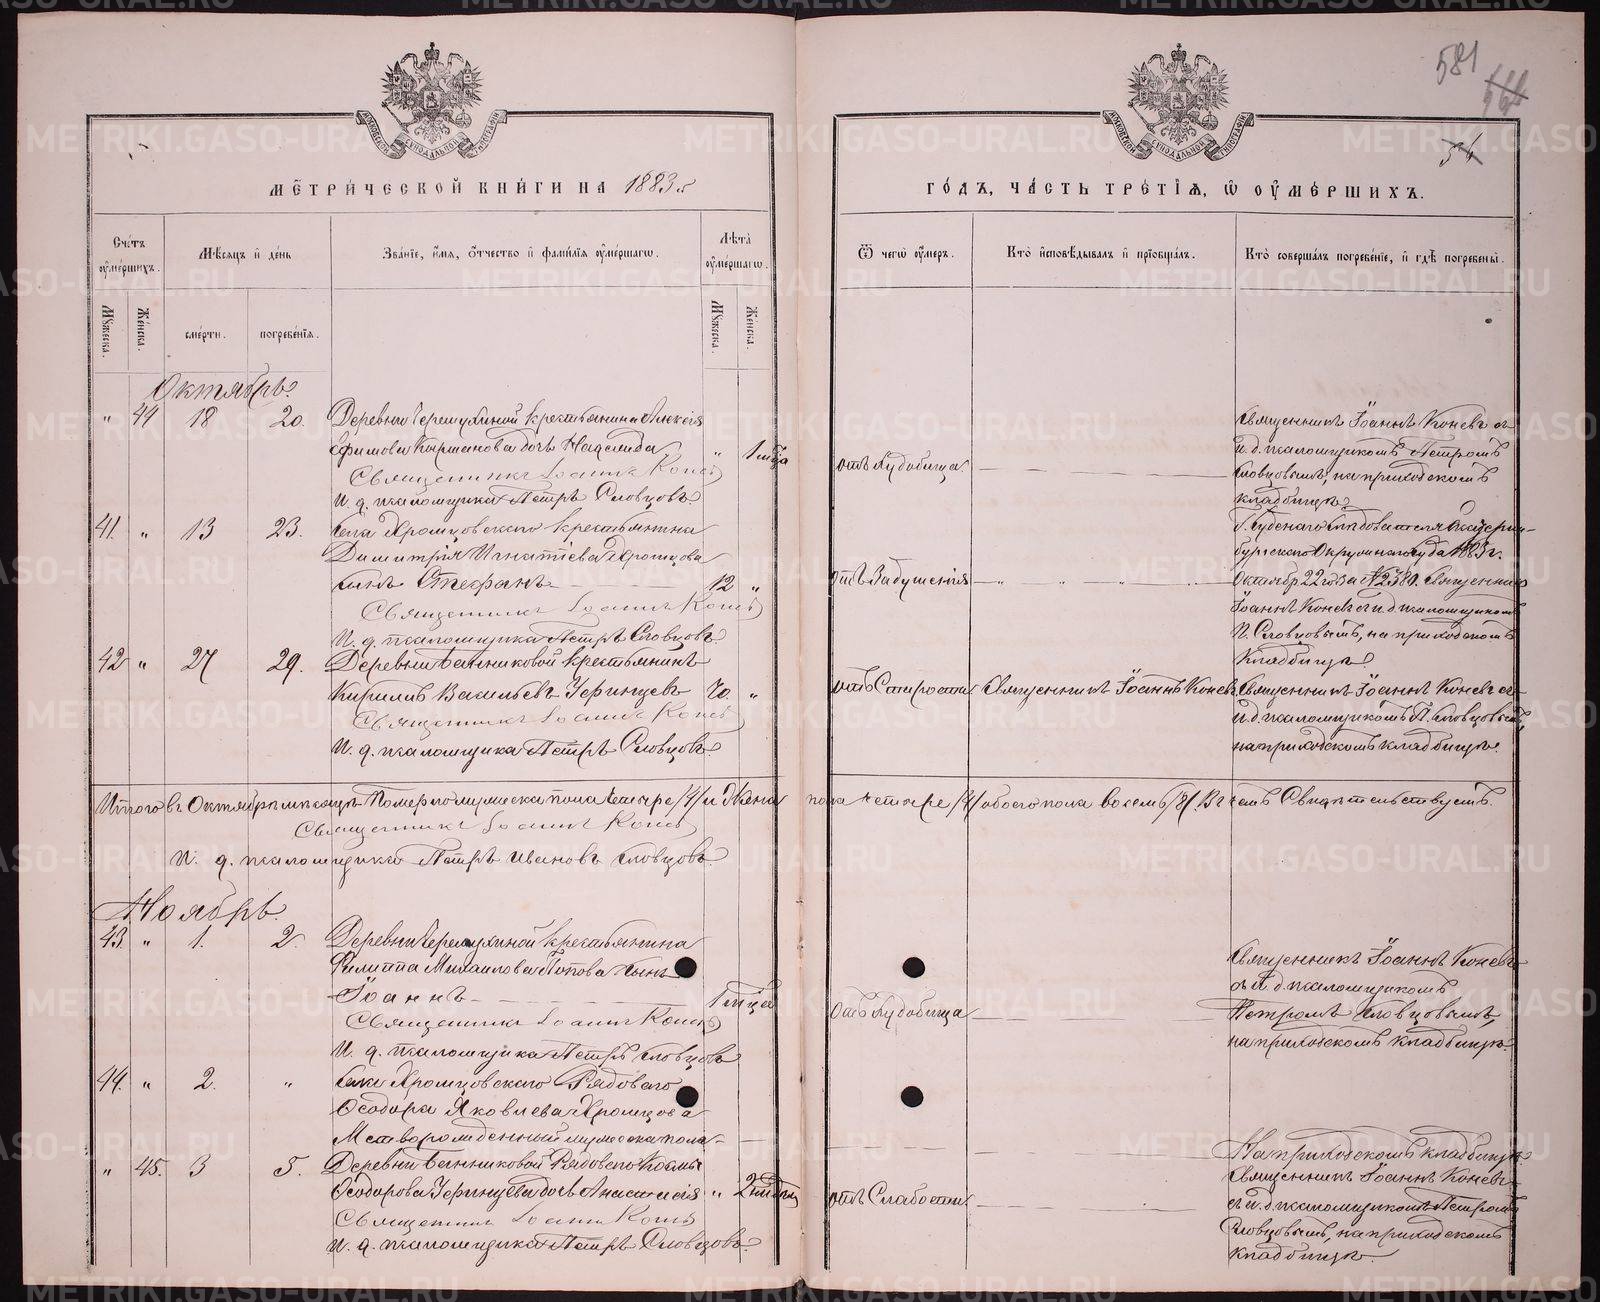 581
564
54
МОСКОВСКОЙ СѴНОДАЛЬНОЙ ТИПОГРАФІИ
МОСКОВСКОЙ СѴНОДАЛЬНОЙ ТИПОГРАФІИ
МЕТРИЧЕСКОЙ КНИГИ НА 1883й
ГОДЪ, ЧАСТЬ ТРЕТІЯ, Ѡ ОУМЕРШИХЪ.
Счетъ оумершихъ.
Мѣсяцъ и день
Званіе, имя, отчество и фамилія оумершагѡ.
Лѣта оумершагѡ.
Ѿ чегѡ оумеръ.
Кто исповѣдывалъ и пріобщалъ.
Кто совершалъ погребеніе, и гдѣ погребены.
Мужеска.
Женска.
смерти.
погребенія.
Мужеска.
Женска.
Октябрь.
" 44 18 20. Деревни Черемухиной крестьянина Алексія
Ефимова Кирпанова дочь Надежда " 1 мѣсца
Священникъ Іоаннъ Коневъ
И. д. псаломщика Петръ Словцовъ.
отъ худобища
Священникъ Іоаннъ Коневъ съ
и. д. псаломщикомъ Петромъ
Словцовымъ, на приходскомъ
кладбищѣ.
41. " 13 23. Села Хромцовскаго крестьянина
Димитрія Игнатіева Хромцова
сынъ Стефанъ 12 "
Священникъ Іоаннъ Коневъ
И. д. псаломщика Петръ Словцовъ.
Отъ Задушенія
Судебнаго Слѣдователя Екатерин-
бургскаго Окружнаго Суда 1883 г.
Октября 22 года № 2380. Священникъ
Іоаннъ Коневъ съ и. д. псаломщикомъ
П. Словцовымъ, на приходскомъ
кладбищѣ.
42 " 27 29. Деревни Банниковой крестьянинъ
Кириллъ Васильевъ Уфинцевъ 70 "
Священникъ Іоаннъ Коневъ
И. д. псаломщика Петръ Словцовъ
отъ Старости
Священникъ Іоаннъ Коневъ
Священникъ Іоаннъ Коневъ съ
и. д. псаломщикомъ П. Словцовымъ,
на приходскомъ кладбищѣ.
Итого въ Октябрѣ мѣсяцѣ Померло мужеска пола четыре /4/ и Женска пола четыре /4/ обоего пола восемь /8/. Въ чемъ Свидѣтельствуемъ.
Священникъ Іоаннъ Коневъ
И. д. псаломщика Петръ Ивановъ Словцовъ.
Ноябрь.
43. " 1. 2. Деревни Черемухиной крестьянина
Филиппа Михаилова Попова сынъ
Іоаннъ 1 мѣсца
Священникъ Іоаннъ Коневъ
И. д. псаломщика Петръ Словцовъ
Отъ худобища
Священникъ Іоаннъ Коневъ
съ и. д. псаломщикомъ
Петромъ Словцовымъ,
на приходскомъ кладбищѣ.
44. " 2. " Села Хромцовскаго Рядоваго
Ѳеодора Яковлева Хромцова
Мертворожденный мужеска пола
На приходскомъ кладбищѣ
" 45. 3 5. Деревни Банниковой Рядоваго Космы
Ѳеодорова Уфинцева дочь Анастасія " 2 нидѣли
Священникъ Іоаннъ Коневъ
И. д. псаломщика Петръ Словцовъ.
отъ Слабости
Священникъ Іоаннъ Коневъ
съ и. д. псаломщикомъ Петромъ
Словцовымъ, на приходскомъ
кладбищѣ.
METRIKI.GASO-URAL.RU